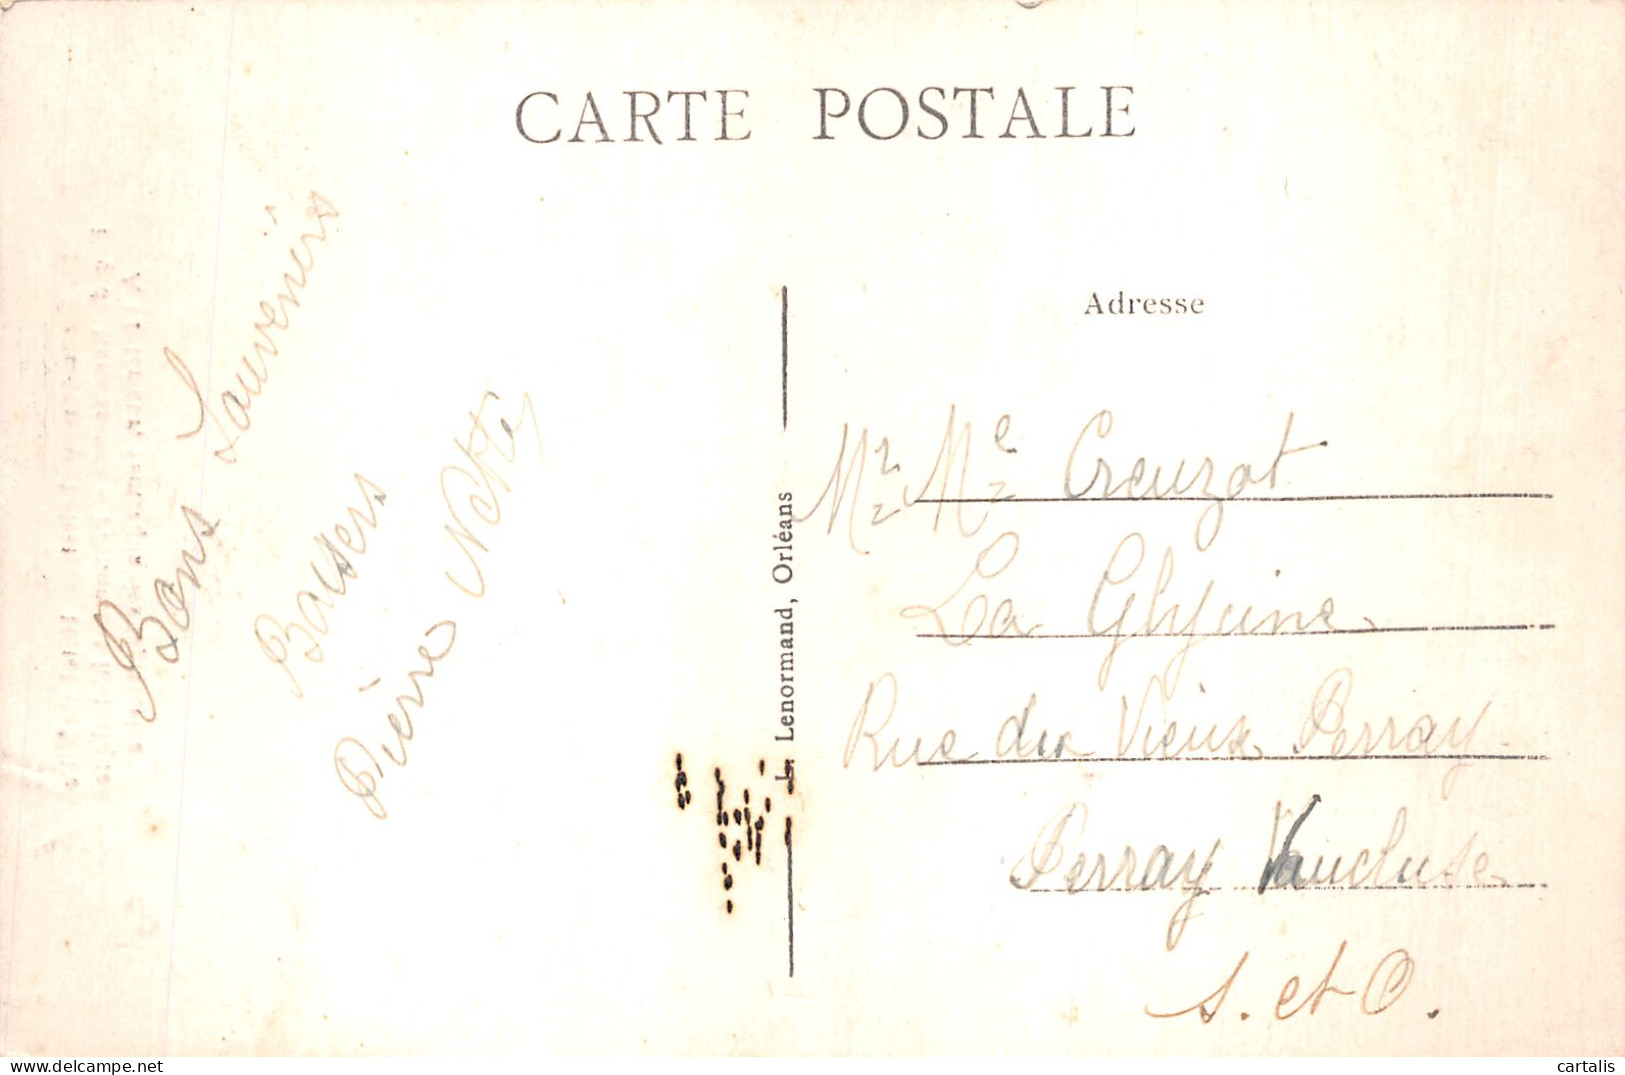 CARTE POSTALE
Bons Souvenirs
Baisers
Pierre
L. Lenormand, Orléans
Adresse
Mr Me Creuzot
La Glycine
Rue du Vieux Perray
Perray Vaucluse
S. et O.
cartalis